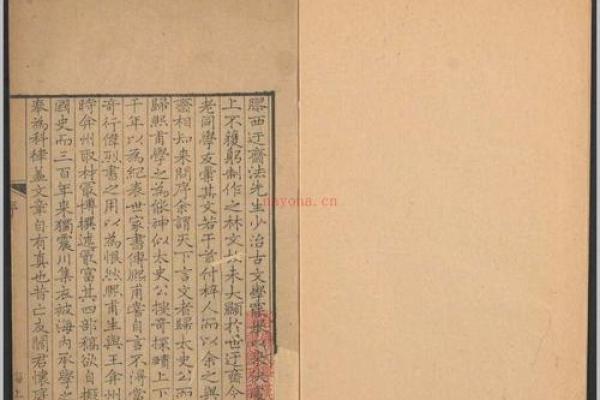 膠西迂齋法先生少治古文學
上不獲躬制作之林文以未大顯於世迂齋今
老同學友彙其文若干首付梓人而以余之與
齋相知來問序余謂天下言文者歸太史公而
歸熙甫學之為能神似太史公搜奇探賾上下
千年以為紀表世家書傳熙甫嘗自言不得當
奇行偉烈書之用以為恨然熙甫生與王弇州
時弇州取材最博撰述最富其四部稿欲自擬
國史而三百年來獨震川集衣被海內承學之
奉為科律蓋文章自有真也昔亡友閻君懷庭
序
nayona.cn